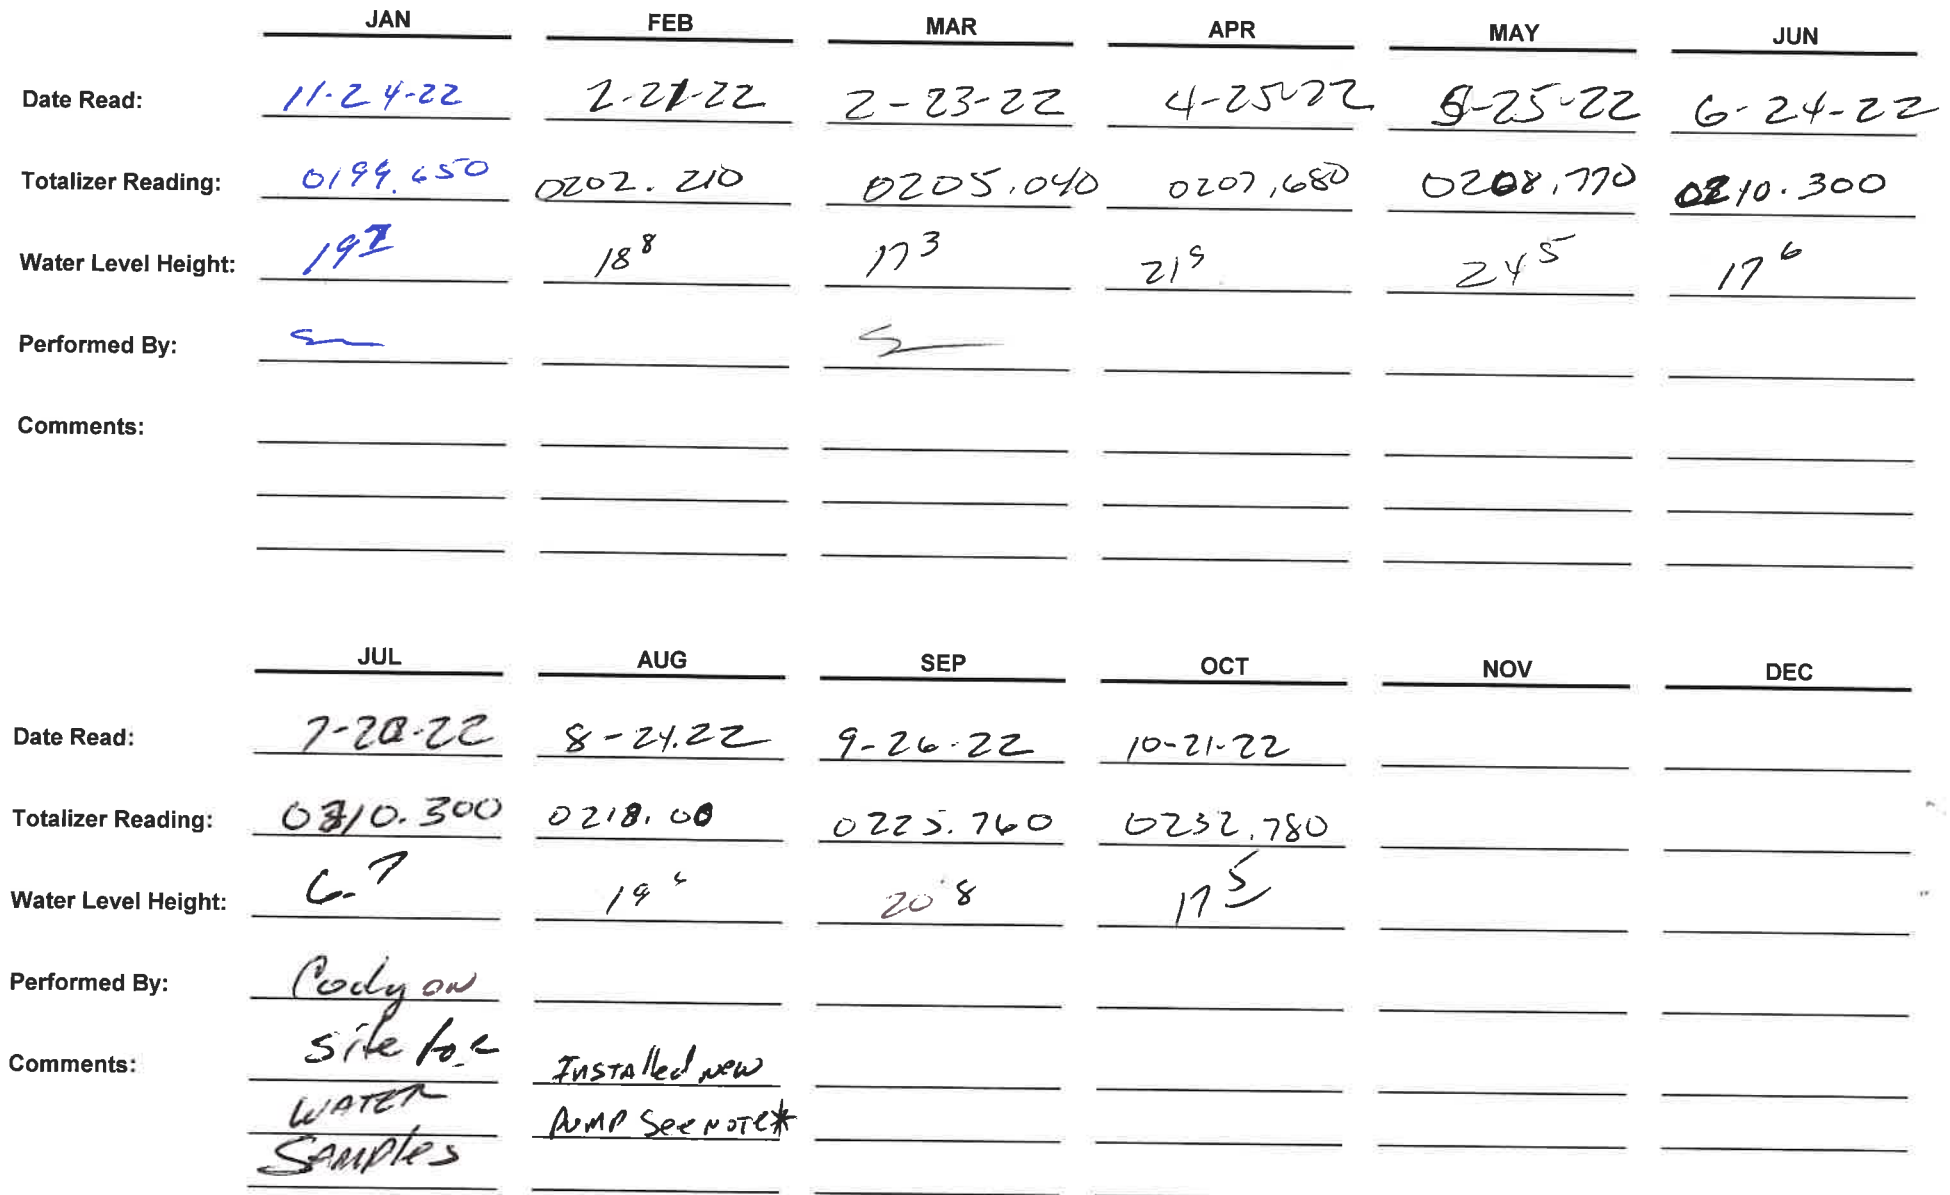 JAN FEB MAR APR MAY JUN
Date Read: 11-24-22 2-21-22 2-23-22 4-25-22 5-25-22 6-24-22
Totalizer Reading: 0199.650 0202.210 0205.040 0207,680 0208.770 0210.300
Water Level Height: 18 8 17 3 21 5 24 5 17 6
Performed By:
Comments:
JUL AUG SEP OCT NOV DEC
Date Read: 8-24.22 9-26-22 10-21-22
Totalizer Reading: 0210.300 0218.00 0225.760 0232.780
Water Level Height: 6.7 19 20 8 17 5
Performed By: Cody on
Comments: Site for Installed new
WATER PUMP See NOTE*
SAMPles